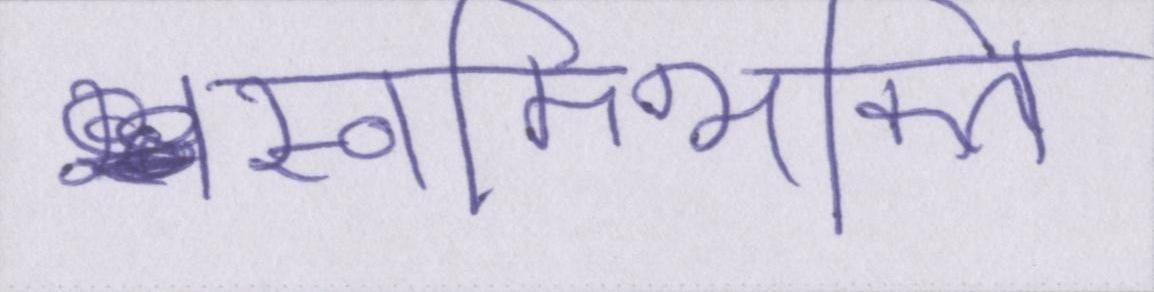 स्वमिभक्ति